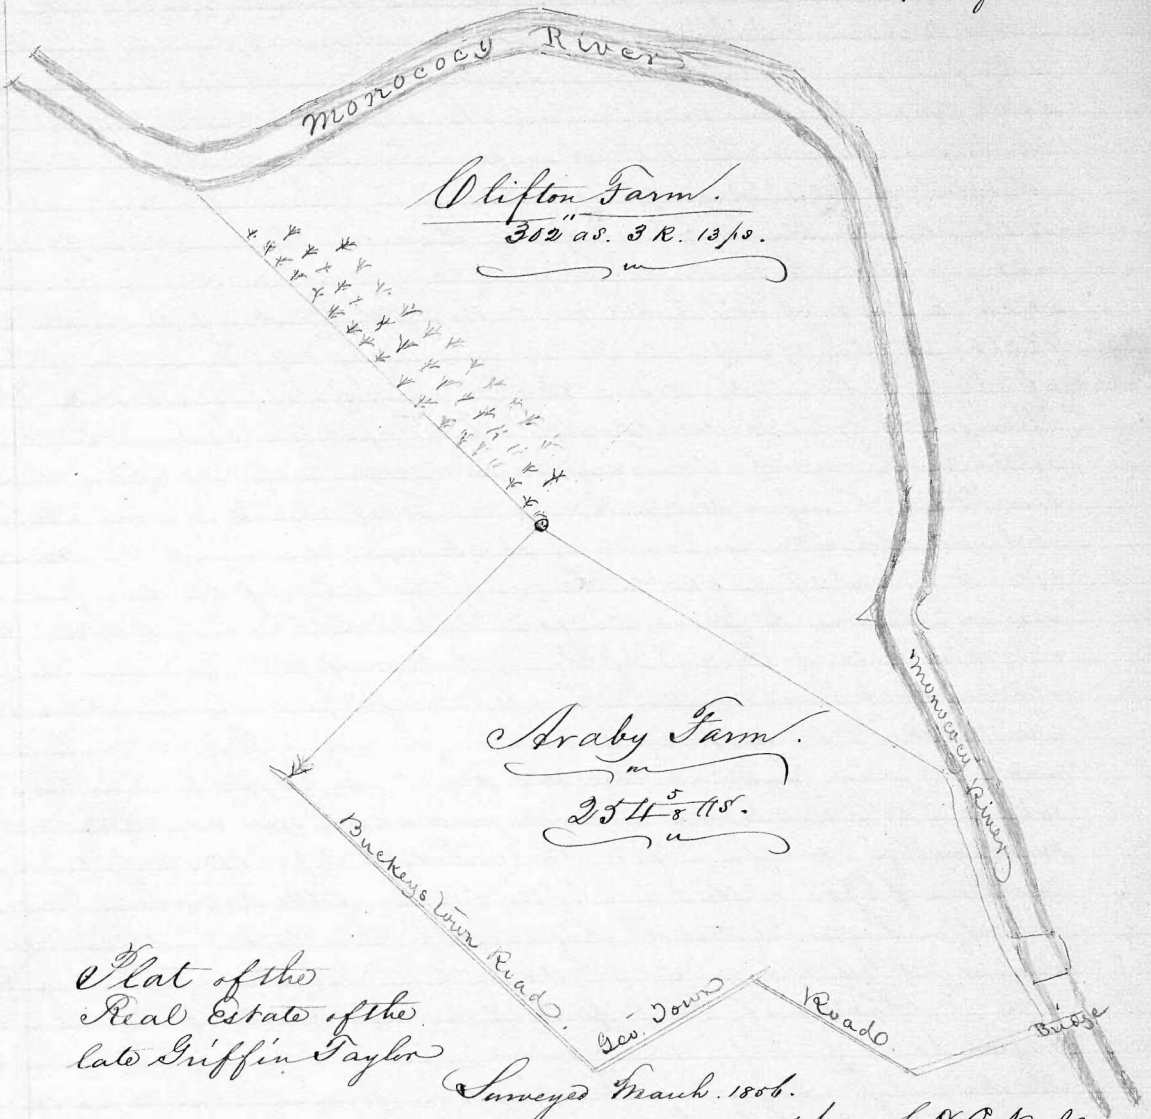 Monococy River
Clifton Farm.
302 as. 3 R. 13 ps.
Monococy River
Araby Farm.
254 5/8 as.
Buckeys Town Road.
Geo. Town Road.
Bridge
Plat of the
Real Estate of the
late Griffin Taylor
Surveyed March. 1856.